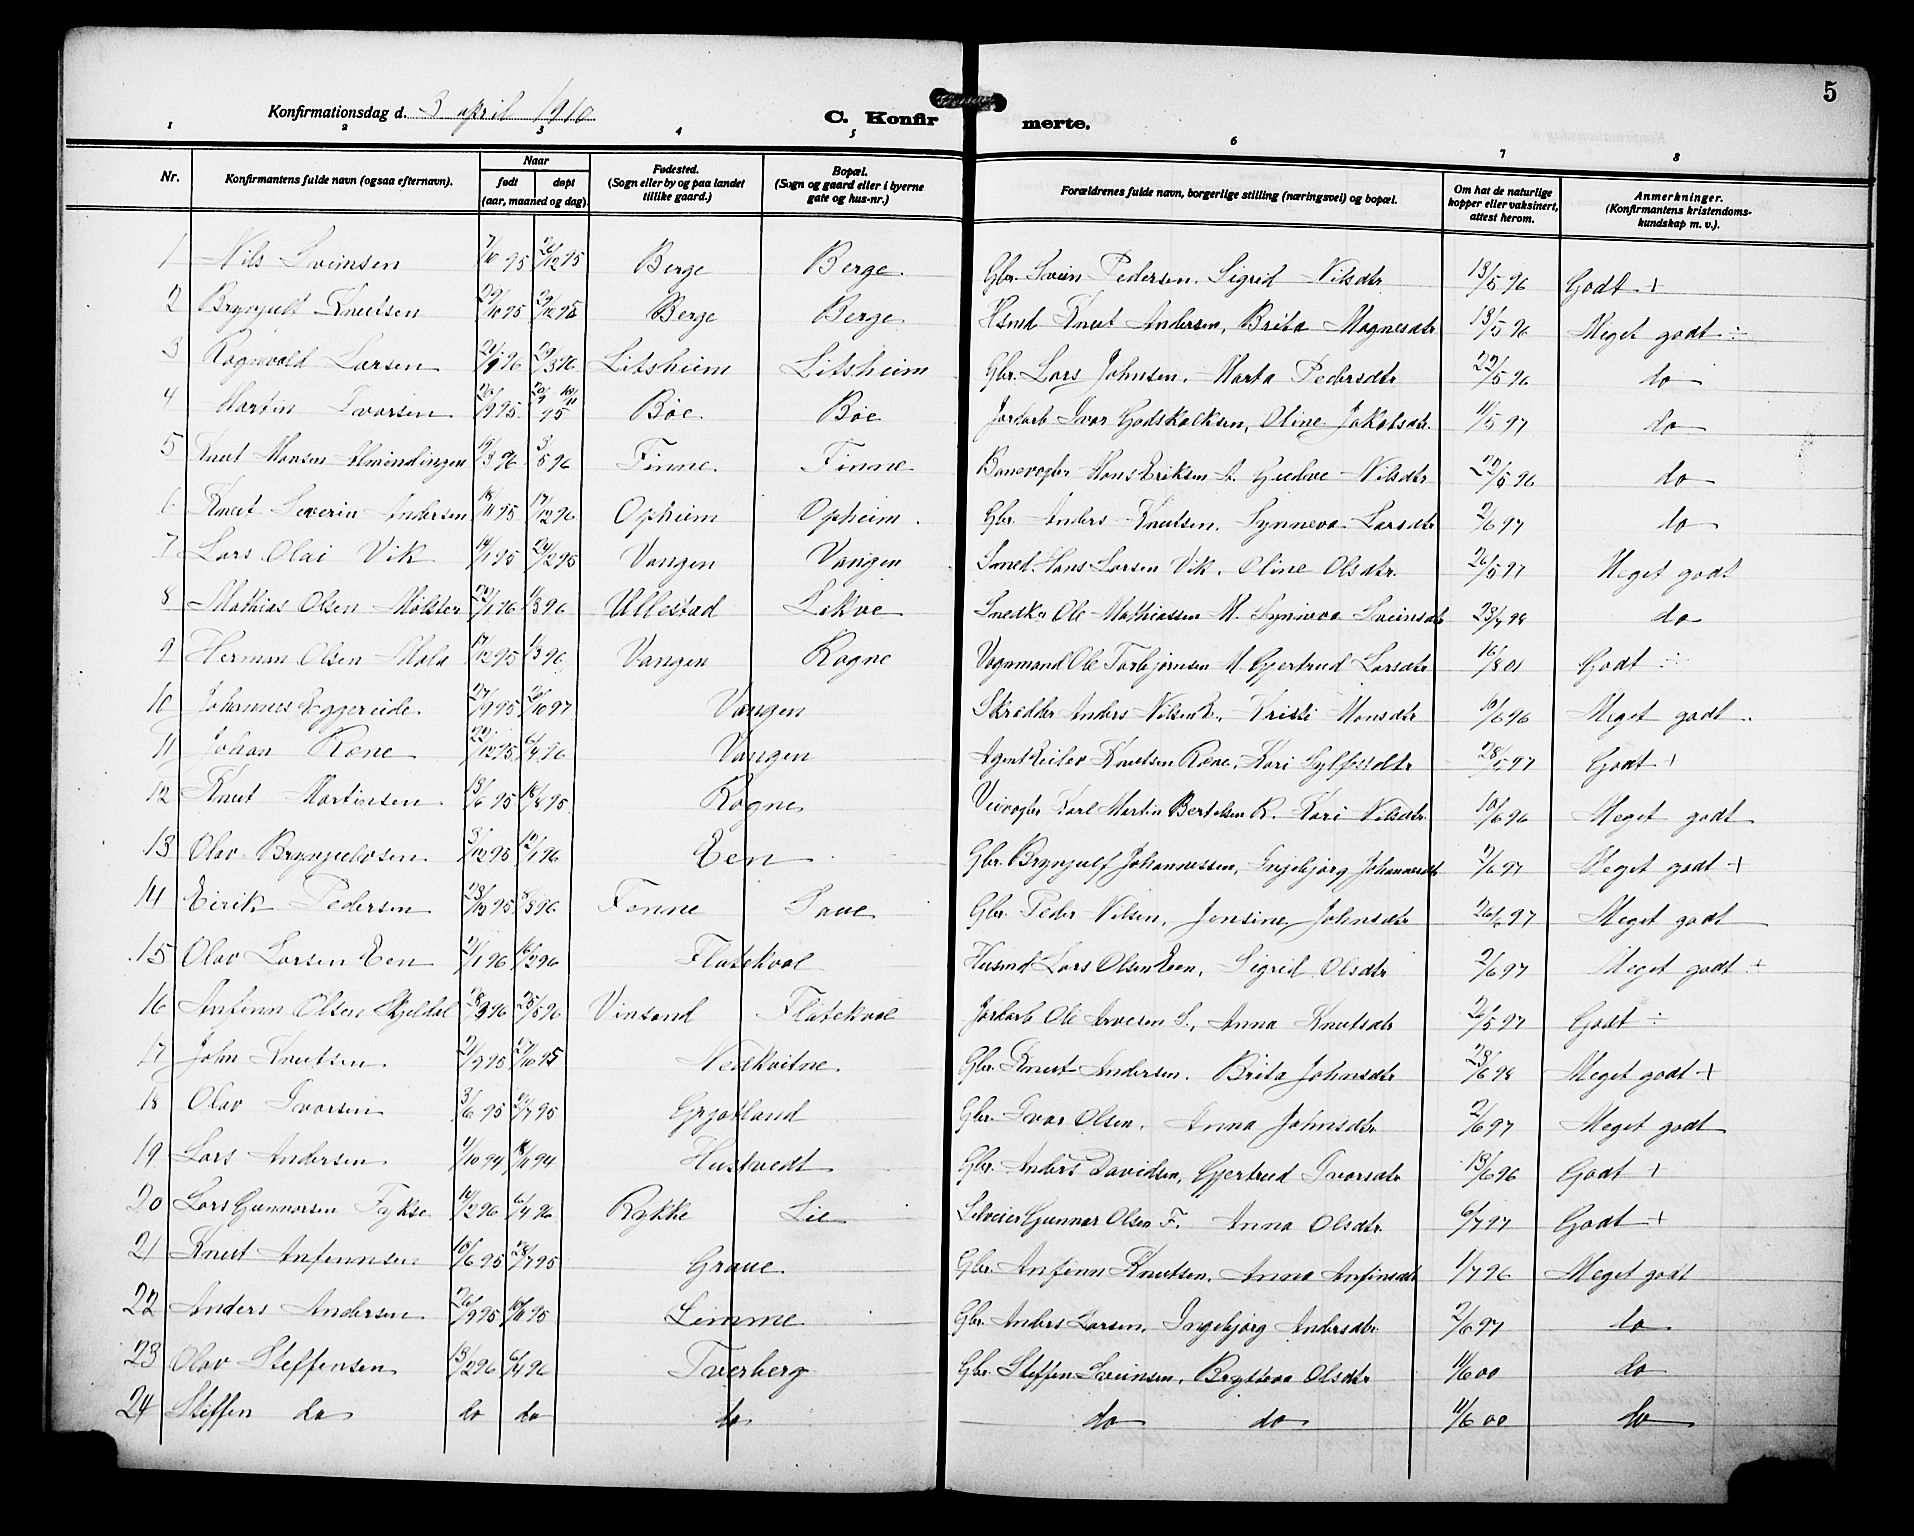 5
Konfirmationsdag d. 3 april 1910
C. Konfirmerte.
1 2 3 4 5 6 7 8
Nr. Konfirmantens fulde navn (ogsaa efternavn). Naar født døpt (aar, maaned og dag) Fødested. (Sogn eller by og paa landet tillike gaard.) Bopæl. (Sogn og gaard eller i byerne gate og hus-nr.) Forældrenes fulde navn, borgerlige stilling (næringsvei) og bopæl. Om hat de naturlige kopper eller vaksinert, attest herom. Anmerkninger. (Konfirmantens kristendomskundskap m. v.).
1 Nils Sveinsen 7/10 95 26/12 95 Berge Berge. Gbr. Svein Pedersen, Sigrid Nilsdtr 13/5 96 Godt +
2 Brynjulf Knutsen 29/10 95 29/12 95 Berge Berge Hsmd Knut Andersen, Brita Magnesdtr 13/5 96 Meget godt ÷
3 Ragnvald Larsen 21/1 96 29/3 96 Litsheim Litsheim Gbr. Lars Johnsen, Marta Pedersdtr 22/5 96 do
4 Martin Ivarsen 20/9 95 Bøe Bøe Jordarb Ivar Godskalksen, Oline Jakobsdtr. 11/5 97 do
5 Knut Monsen Almindingen 19/3 96 3/5 96 Finne. Finne Banevogter Mons Eriksen A. Gudve Nilsdtr 22/5 96 do
6 Knut Severin Andersen 18/11 95 17/12 96 Opheim Opheim. Gbr. Anders Knutsen, Synneva Larsdtr 2/6 97 do
7 Lars Olai Vik 14/1 95 24/2 95 Vangen Vangen Smed. Hans Larsen Vik, Oline Olsdtr. 26/5 97 Meget godt
8 Mathias Olsen Mølster 20/1 96 1/3 96 Ullestad Lekve Snedker Ole Mathiassen M. Synneva Sveinsdtr 23/7 98 do
9 Herman Olsen Mala 17/12 95 1/3 96 Vangen Rogne Vognmand Ole Torbjørnsen M Gjertrud Larsdtr 16/8 01 Godt ÷
10 Johannes Eggereide. 27/9 95 26/10 97 Vangen Skrædder Anders Nilsen E., Kristi Monsdtr 10/6 96 Meget godt.
11 Johan Ræne 22/12 95 6/4 96 Vangen Agent Reiler Knutsen Ræne, Kari Sylfestdtr 28/5 97 Godt +
12 Knut Martinsen 13/6 95 18/8 95 Rogne Veivogter Karl Martin Bertelsen R. Kari Nilsdtr. 10/6 96 Meget godt
13 Olav Brynjulvsen 3/12 95 12/1 96 Een Gbr. Brynjulf Johannessen, Ingebjørg Johannesdtr 2/6 97 Meget godt +
14 Eirik Pedersen 28/12 95 8/3 96 Fenne Saue Gbr. Peder Nilsen, Jensine Johnsdtr 26/6 97 Meget godt
15 Olav Larsen Een 21/1 96 16/2 96 Flatekval Husmd Lars Olsen Een, Sigrid Olsdtr 2/6 97 Meget godt +
16 Anfinn Olsen Skjeldal 28/3 96 25/5 96 Vinsand Flatekval Jordarb Ole Arvesen S., Anna Knutsdtr 26/5 97 Godt ÷
17 John Knutsen 21/9 95 27/10 95 Nedkvitne. Gbr. Knut Andersen. Brita Johnsdtr 28/6 98 Meget godt +
18 Olav Ivarsen 3/6 95 /7 95 Grjotland Gbr. Ivar Olsen, Anna Johnsdtr 2/6 97 Meget godt
19 Lars Andersen 1/10 94 18/11 94 Hustvedt Gbr. Anders Davidsen, Gjertrud Ivarsdtr 13/6 96 Godt +
20 Lars Gunnarsen Fykse 10/2 96 6/4 96 Rykke Lie Gunnar Olsen F. Anna Olsdtr. 6/7 97 Godt +
21 Knut Anfinnsen 10/6 95 28/7 95 Graue. Gbr. Anfinn Knutsen, Anna Anfinsdtr 1/7 96 Meget godt
22 Anders Andersen 26/9 95 10/11 95 Lemme Gbr. Anders Larsen, Ingebjørg Andersdtr. 2/6 97 do
23 Olav Steffensen 13/2 96 6/4 96 Tverberg Gbr. Steffen Sveinsen, Bryteva Olsdtr 11/6 00 do
24 Steffen do do do do do do 11/6 00 do